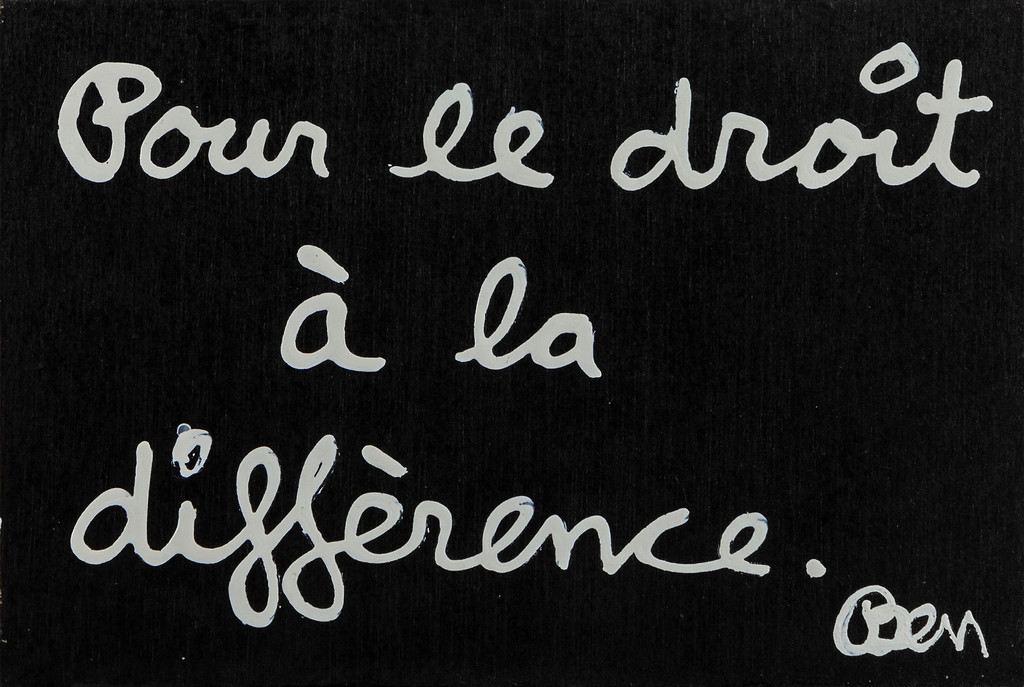 Pour le droit
à la
diffèrence.
Ben